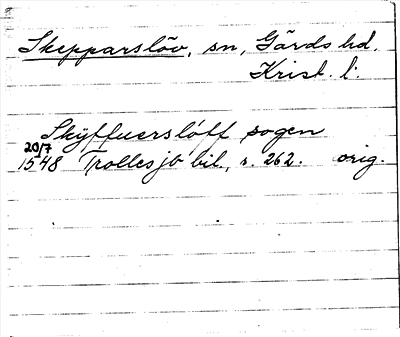 Skepparslöv, sn, Gärds hd.
Krist. l:
Skÿffuerslótt sogen
20/7
1548 Trollesjö bil, s. 262. orig.